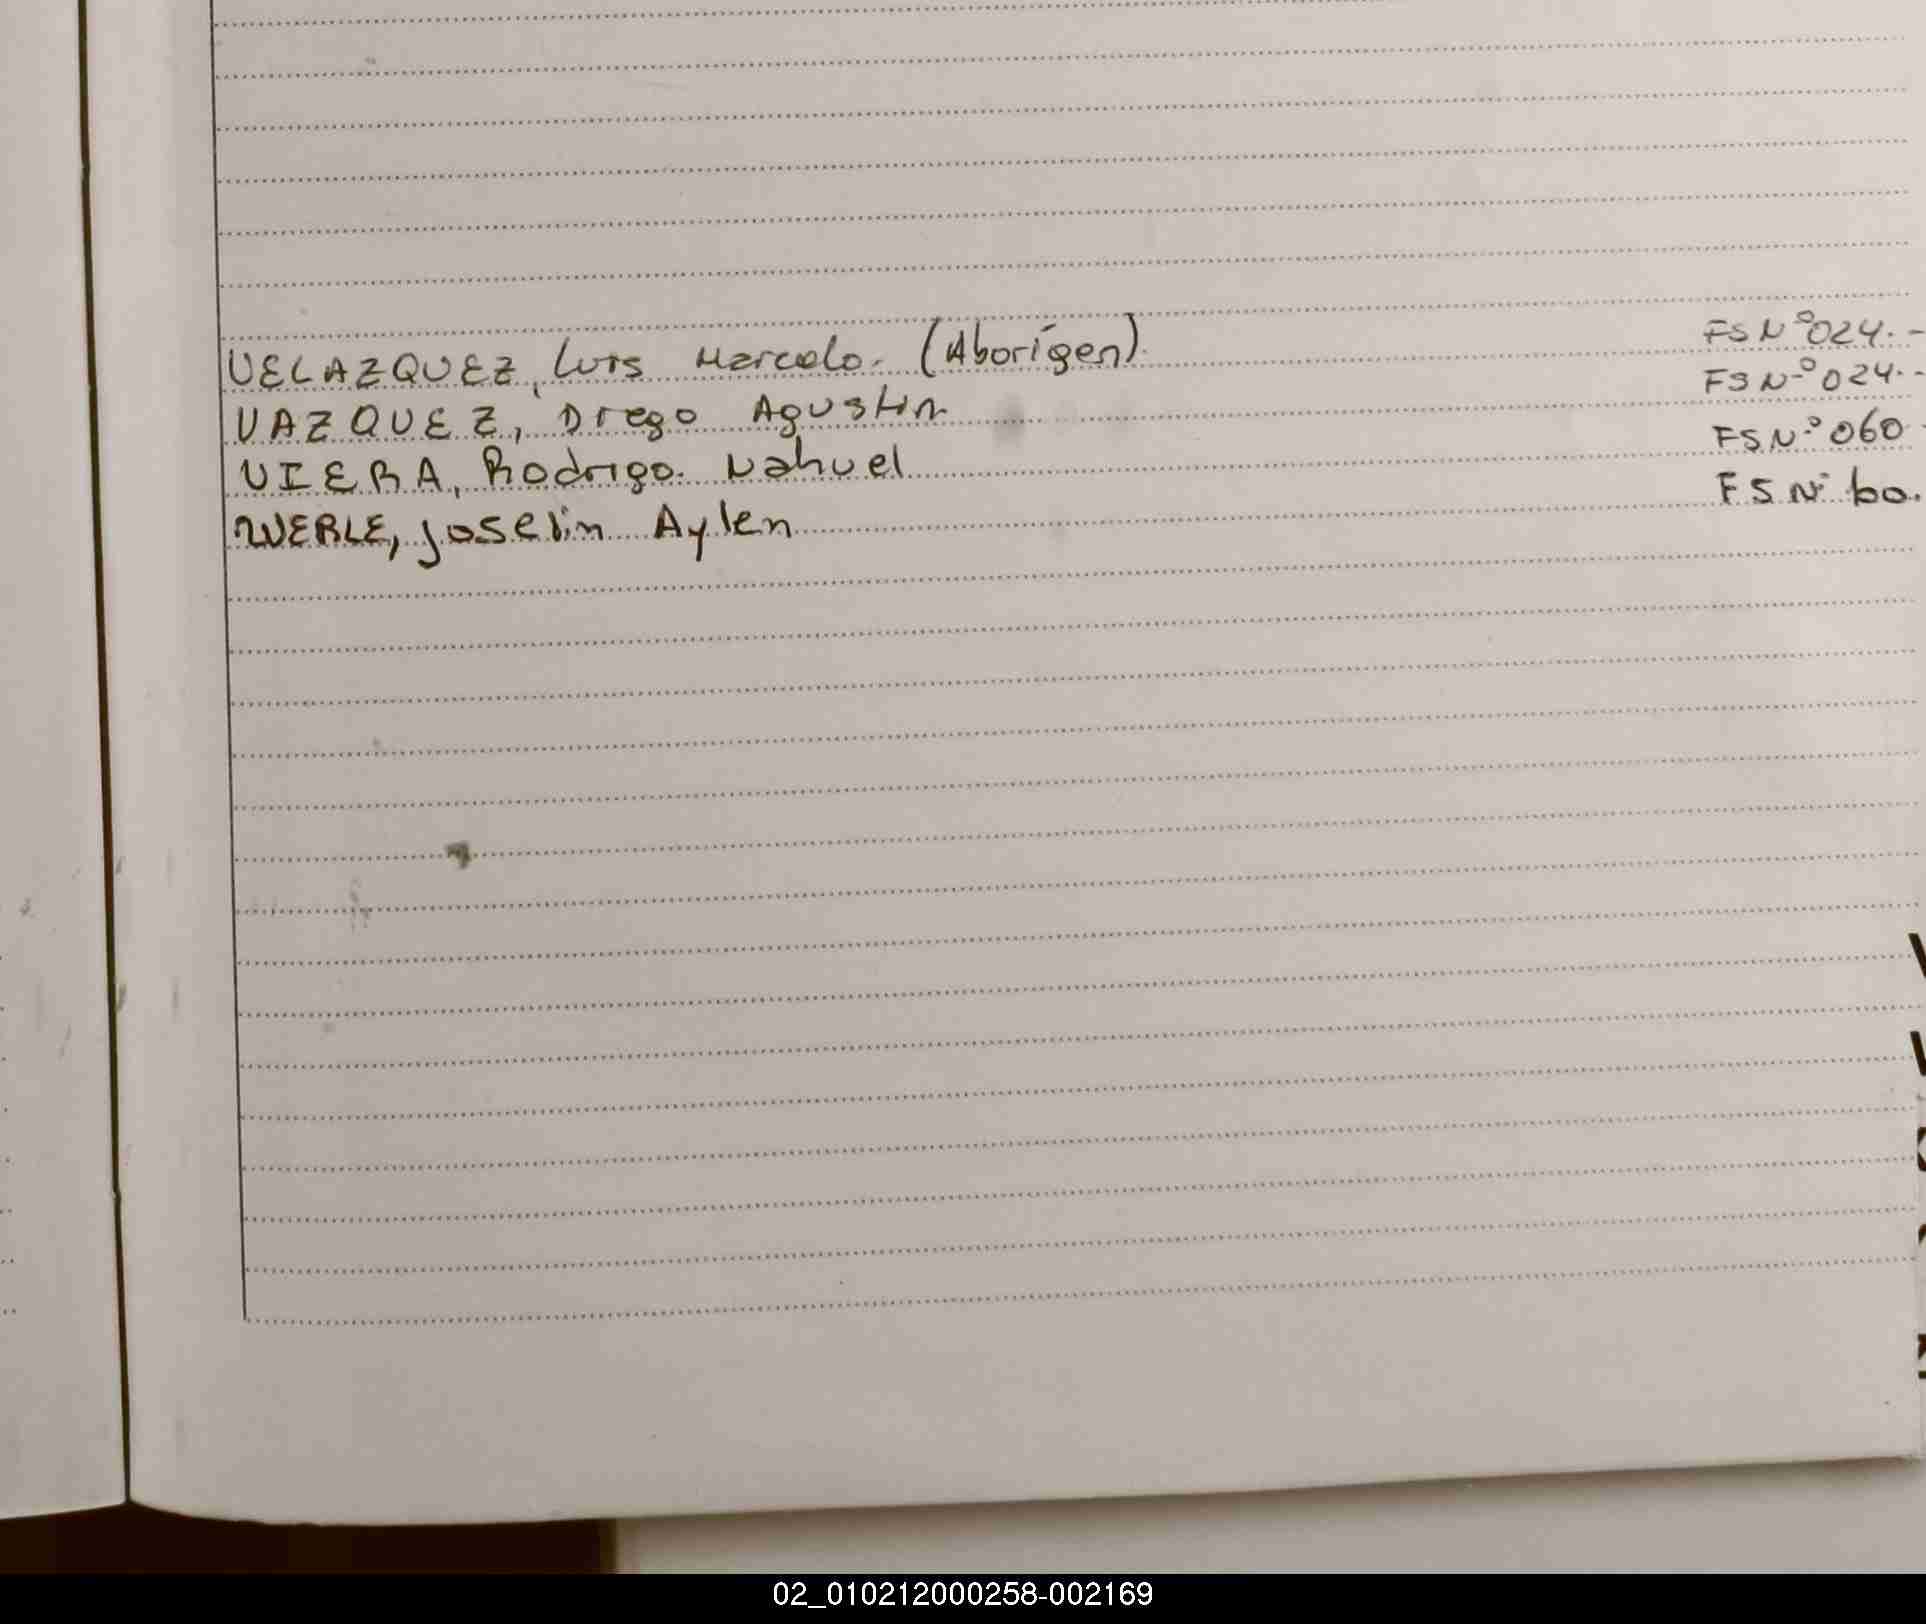 VELAZQUEZ, Luis Marcelo. (Aborigen). FS Nº 024.-
VAZQUEZ, Diego Agustin FS Nº 024.-
VIERA, Rodrigo Nahuel FS Nº 060
WERLE, Joselin Aylen FS Nº 60.
02_010212000258-002169